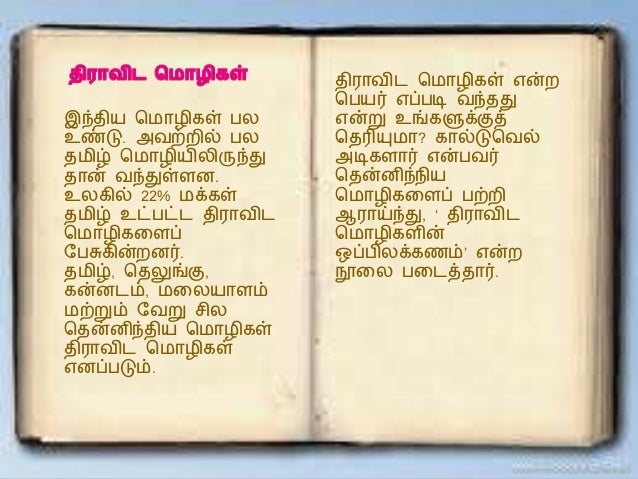 திராவிட மொழிகள்
இந்திய மொழிகள் பல
உண்டு. அவற்றில் பல
தமிழ் மொழியிலிருந்து
தான் வந்துள்ளன.
உலகில் 22% மக்கள்
தமிழ் உட்பட்ட திராவிட
மொழிகளைப்
பேசுகின்றனர்.
தமிழ், தெலுங்கு,
கன்னடம், மலையாளம்
மற்றும் வேறு சில
தென்னிந்திய மொழிகள்
திராவிட மொழிகள்
எனப்படும்.
திராவிட மொழிகள் என்ற
பெயர் எப்படி வந்தது
என்று உங்களுக்குத்
தெரியுமா? கால்டுவெல்
அடிகளார் என்பவர்
தென்னிந்நிய
மொழிகளைப் பற்றி
ஆராய்ந்து, ‘ திராவிட
மொழிகளின்
ஒப்பிலக்கணம்’ என்ற
நூலை படைத்தார்.